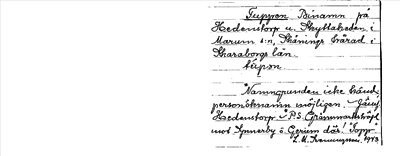 Tuppen Binamn på
Hedenstorp u. Skyttaheden i
Marum s:n, Skånings härad i
Skaraborgs län.
tùpen
Namngrunden icke känd,
personöknamn möjligen. Jämf.
Hedenstorp
mot Synnerby o. Gerum där! "Topp"
1943